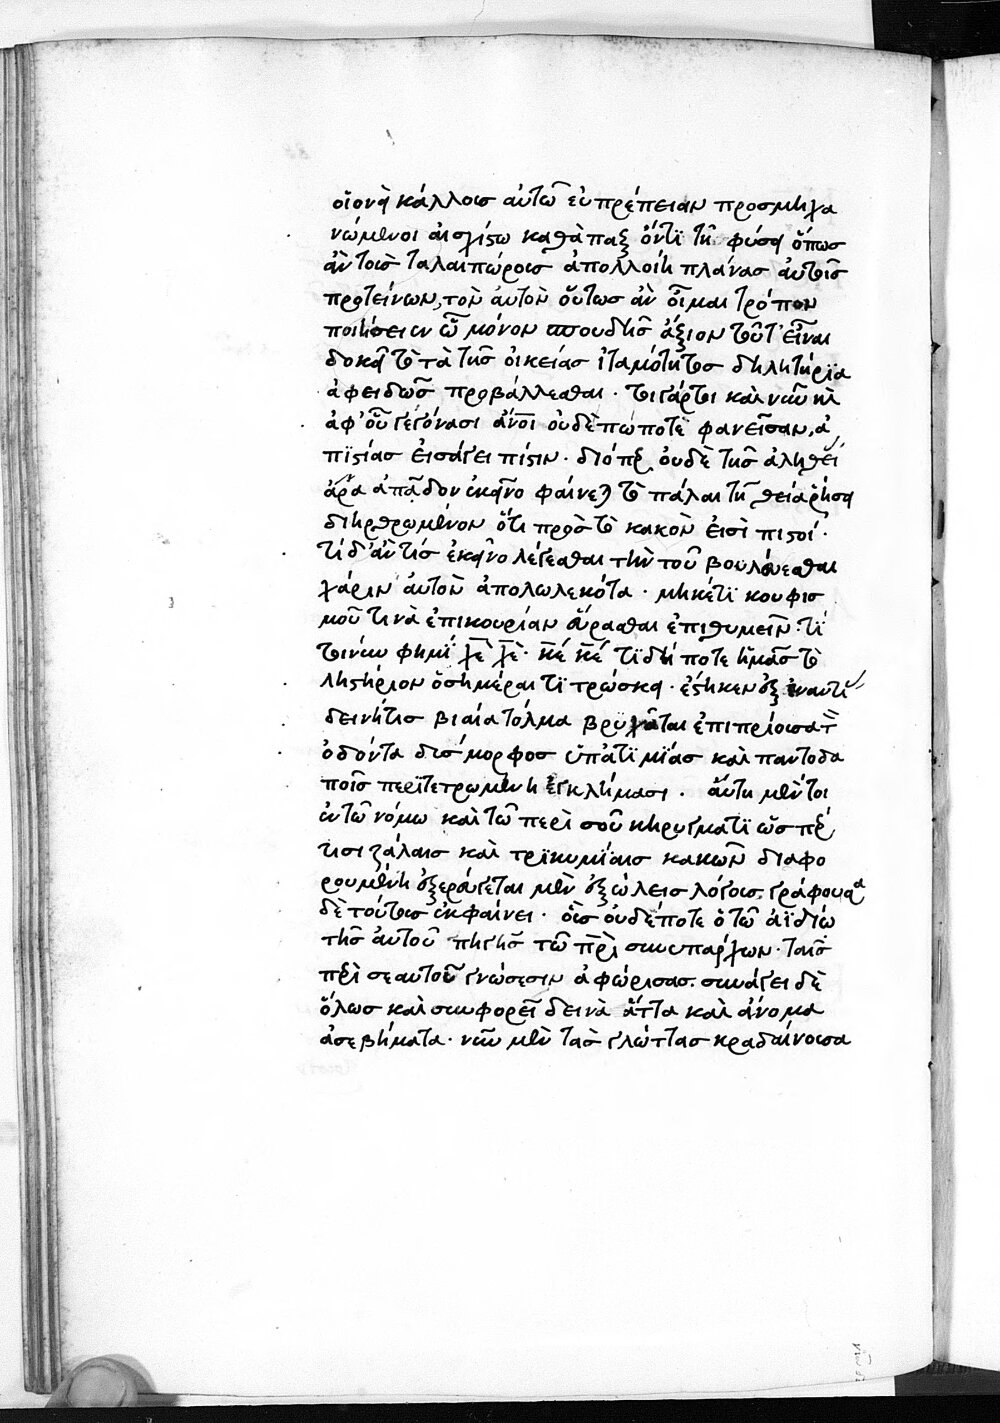 οἱονεὶ κάλλους αὐτῶ εὐπρέπειαν προσμηχα
νώμενοι αἰσχίστω καθάπαξ ὄντι τῆ φύσει ὅπως
ἂν τοῖς ταλαιπώροις ἀπολλοίη πλάνας αὐτοῖς
προτείνων, τὸν αὐτὸν οὕτως ἂν οἶμαι τρόπον
ποιήσειεν ὧ μόνον σπουδῆς ἄξιον τοῦτ' εἶναι
δοκεῖ τὸ τὰ τῆς οἰκείας ἰταμότητος δηλητήρια
ἀφειδῶς προβάλλεσθαι. καὶ νῦν
ἀφ' οὗ γεγόνασι ἄνοι οὐδεπώποτε φανεῖσαν, ἀ
πιστίας εἰσάγει πίστιν. διόπερ οὐδὲ τῆς ἀληθεί
ἄρα ἀπᾶδον ἐκεῖνο φαίνεται τὸ πάλαι τῆ θεία ῥήσει
διηρθρωμένον ὅτι πρὸς τὸ κακὸν εἰσὶ πιστοί.
τί δ' ἄν τις ἐκεῖνο λέγεσθαι τὴν τοῦ βουλεύεσθαι
χάριν αὐτὸν ἀπολωλεκότα. μηκέτι κουφισ
μοῦ τινὰ ἐπικουρίαν αἴρασθαι ἐπιθυμεῖν. τί
τοίνυν φημί χὲ χὲ. κέ κέ τί δή ποτε ἡμᾶς τὸ
ληστήριον ὁσημέραι τιτρώσκει. ἔστηκεν ἐξ ἐναντί
δεινή τις βιαία τόλμα βρύχεται ἐπιπρίουσα τ
ὀδόντα δισμορφος ὑπ' ἀτιμίας καὶ παντοδα
ποῖς περιτετρωμένη ἐγκλήμασι. αὕτη μέντοι
ἐν τῶ νόμω καὶ τῶ περὶ σοῦ κηρύγματι ὥσπερ
τισι ζάλαις καὶ τρικυμίαις κακῶν διαφο
ρουμένη ἐξεράγεται μὲν ἐξώλεις λόγους, γράφουσα
δὲ τούτους ἐκφαίνει. οἷς οὐδέποτε ὁ τῶ ἀϊδίω
τῆς αὐτοῦ πηγῆς τῶ πρὶ συνυπάρχων. ταῖς
περὶ σεαυτοῦ γνώσεσιν ἀφώρισας. συνάγει δὲ
ὅλως καὶ συμφορεῖ δεινὰ ἄττα καὶ ἄνομα
ἀσεβήματα. νῦν μὲν τὰς γλώττας κραδαίνουσα